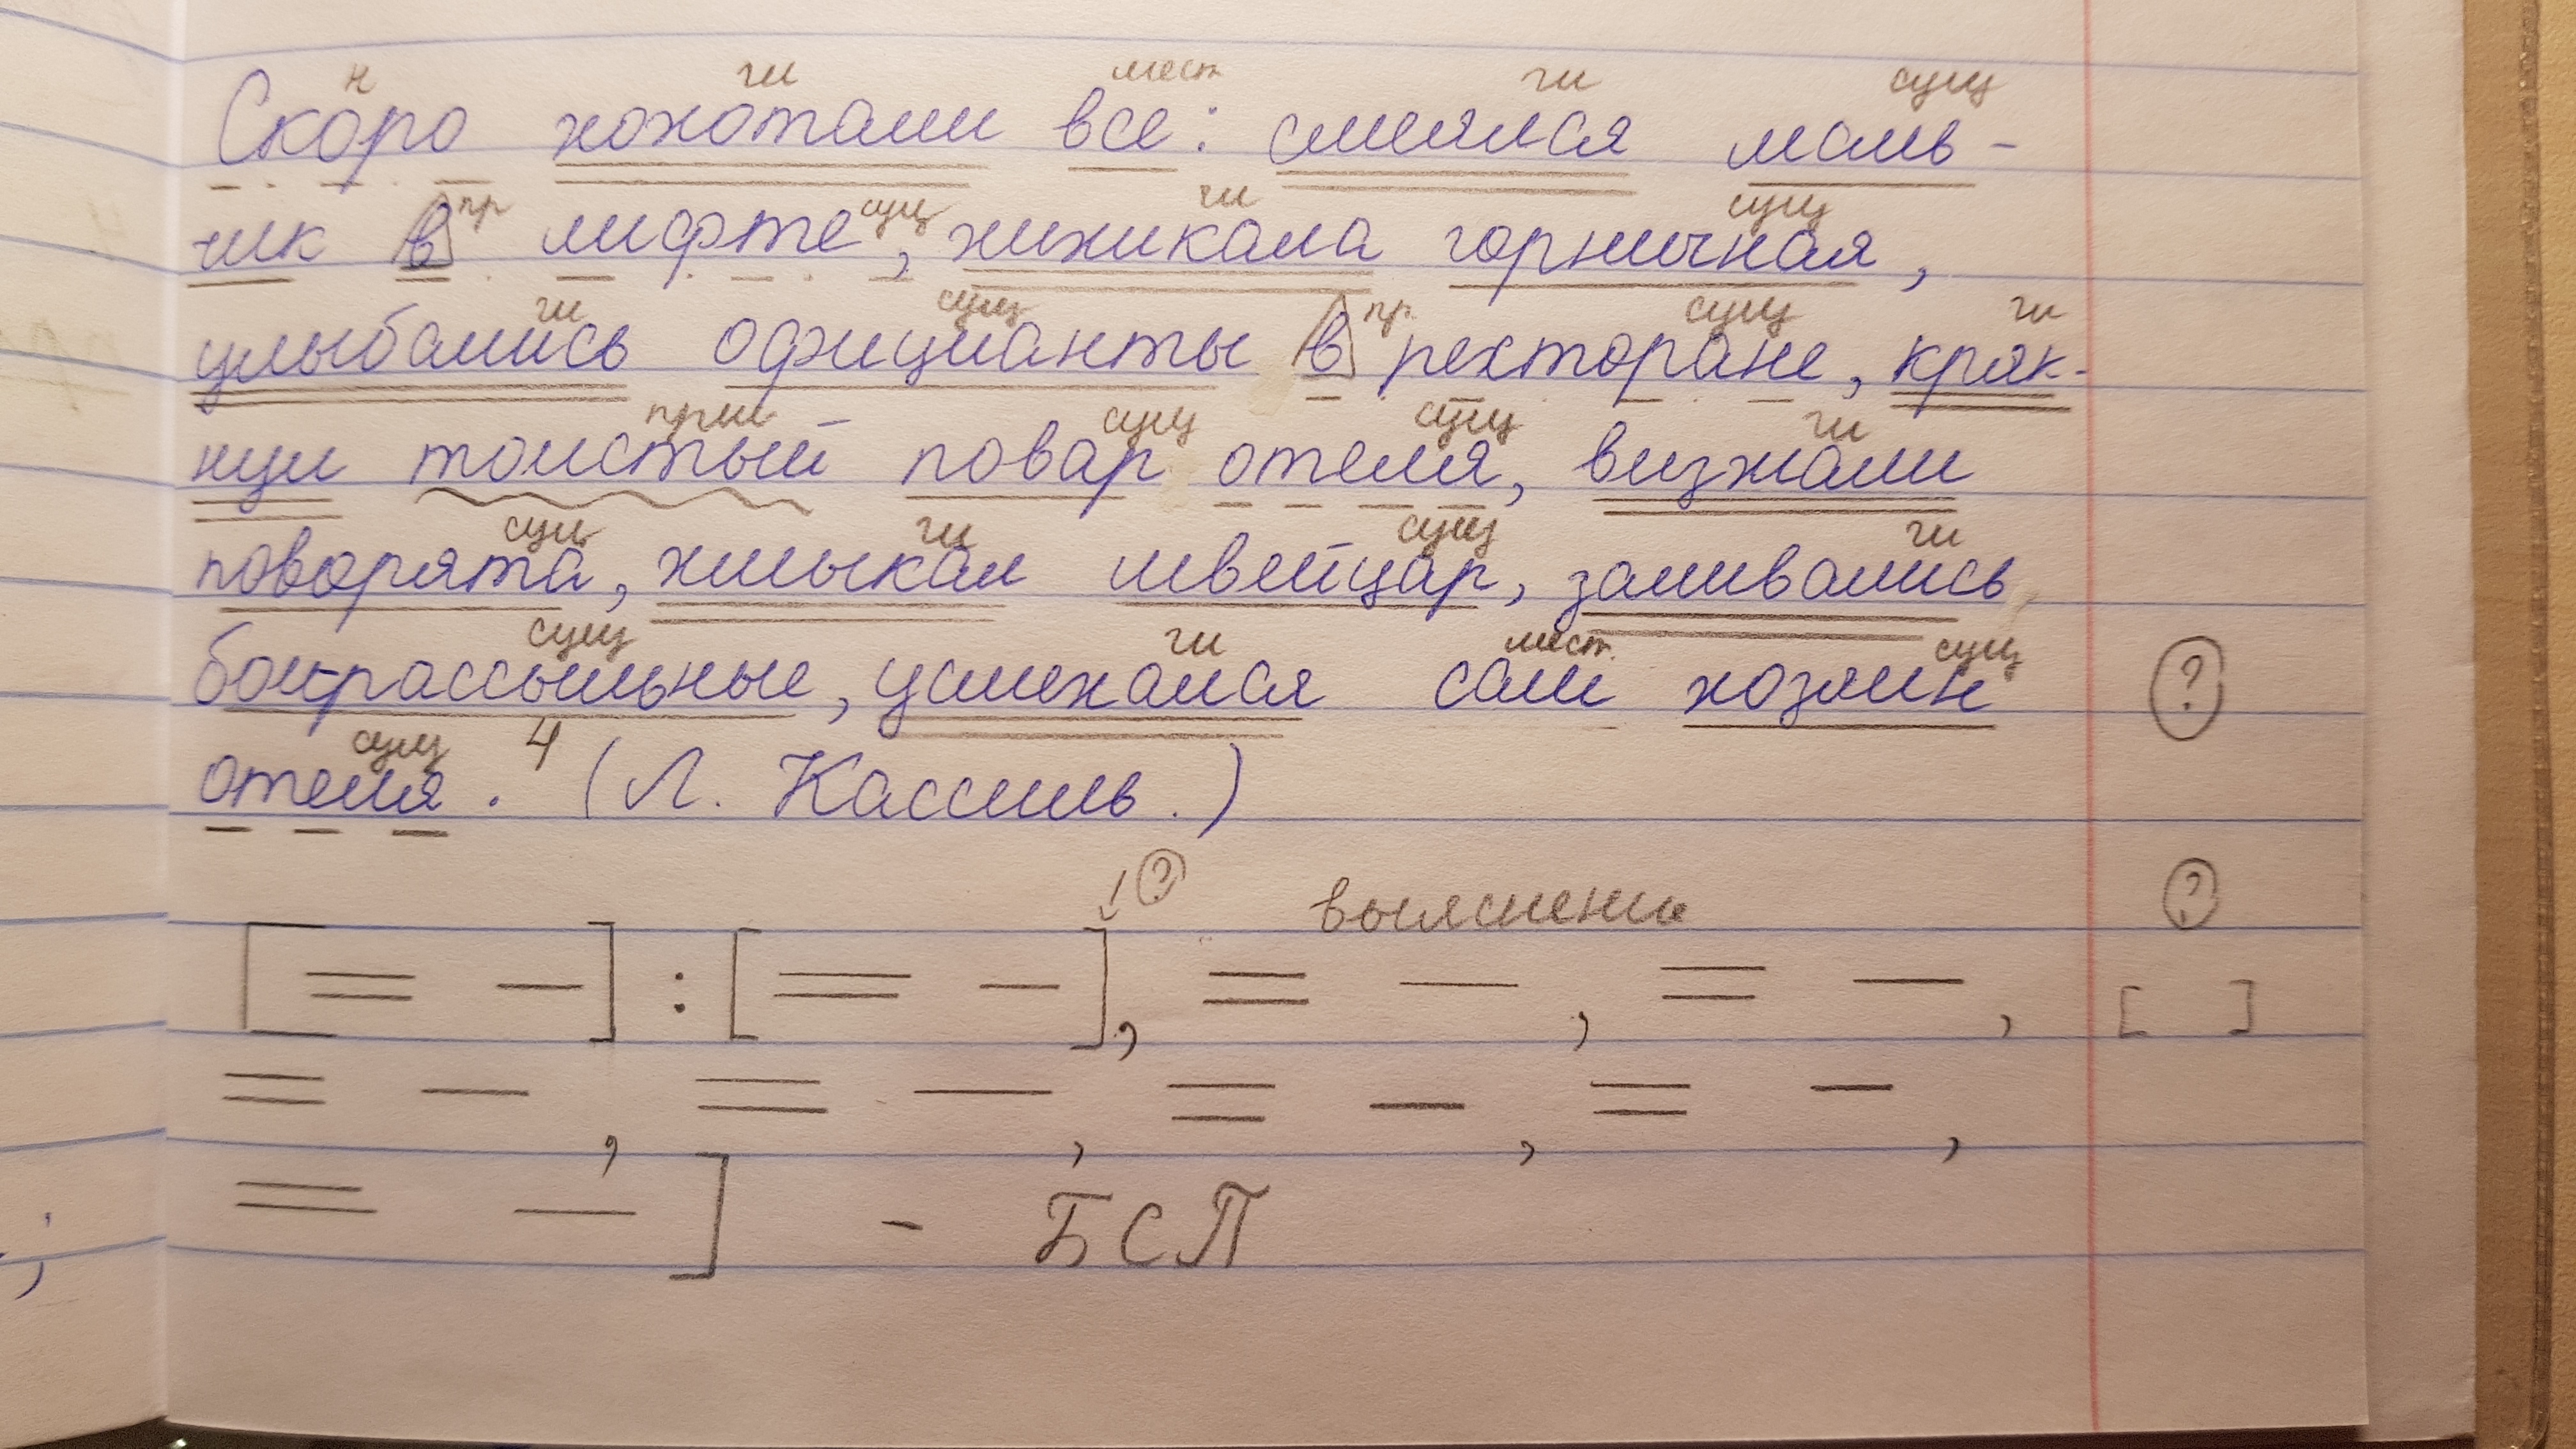 н гл мест гл сущ
Скоро хохотали все: смеялся маль-
пр сущ гл сущ
чик в лифте, хихикала горничная,
гл сущ пр. сущ гл
улыбались официанты в рехторане, кряк-
прил сущ сущ гл
нул толстый повар отеля, визжали
сущ гл сущ гл
поворята, хмыкал швейцар, заливались
сущ гл мест. сущ
бои-рассыльные, усмехался сам хозяин ?
сущ 4
отеля. (Л. Кассиль.)
? ?
[ ] : [ ], , , [ ]
, , , ,
] - БСП